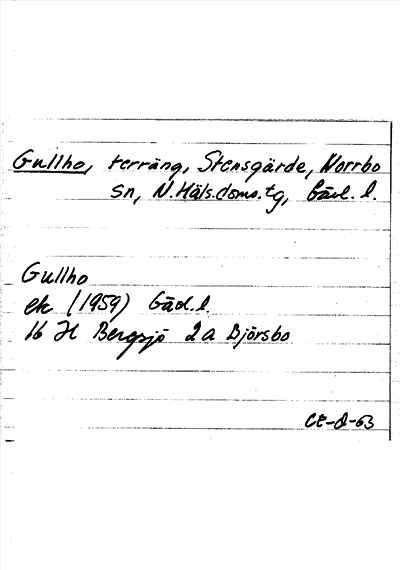 Gullho, terräng, Stensgärde, Norrbo
sn, N.Häls.doms.tg, Gävl. l.
Gullho
ek (1959) Gävl. l.
16 H Bergsjö 2a Björsbo
CE-Q-63